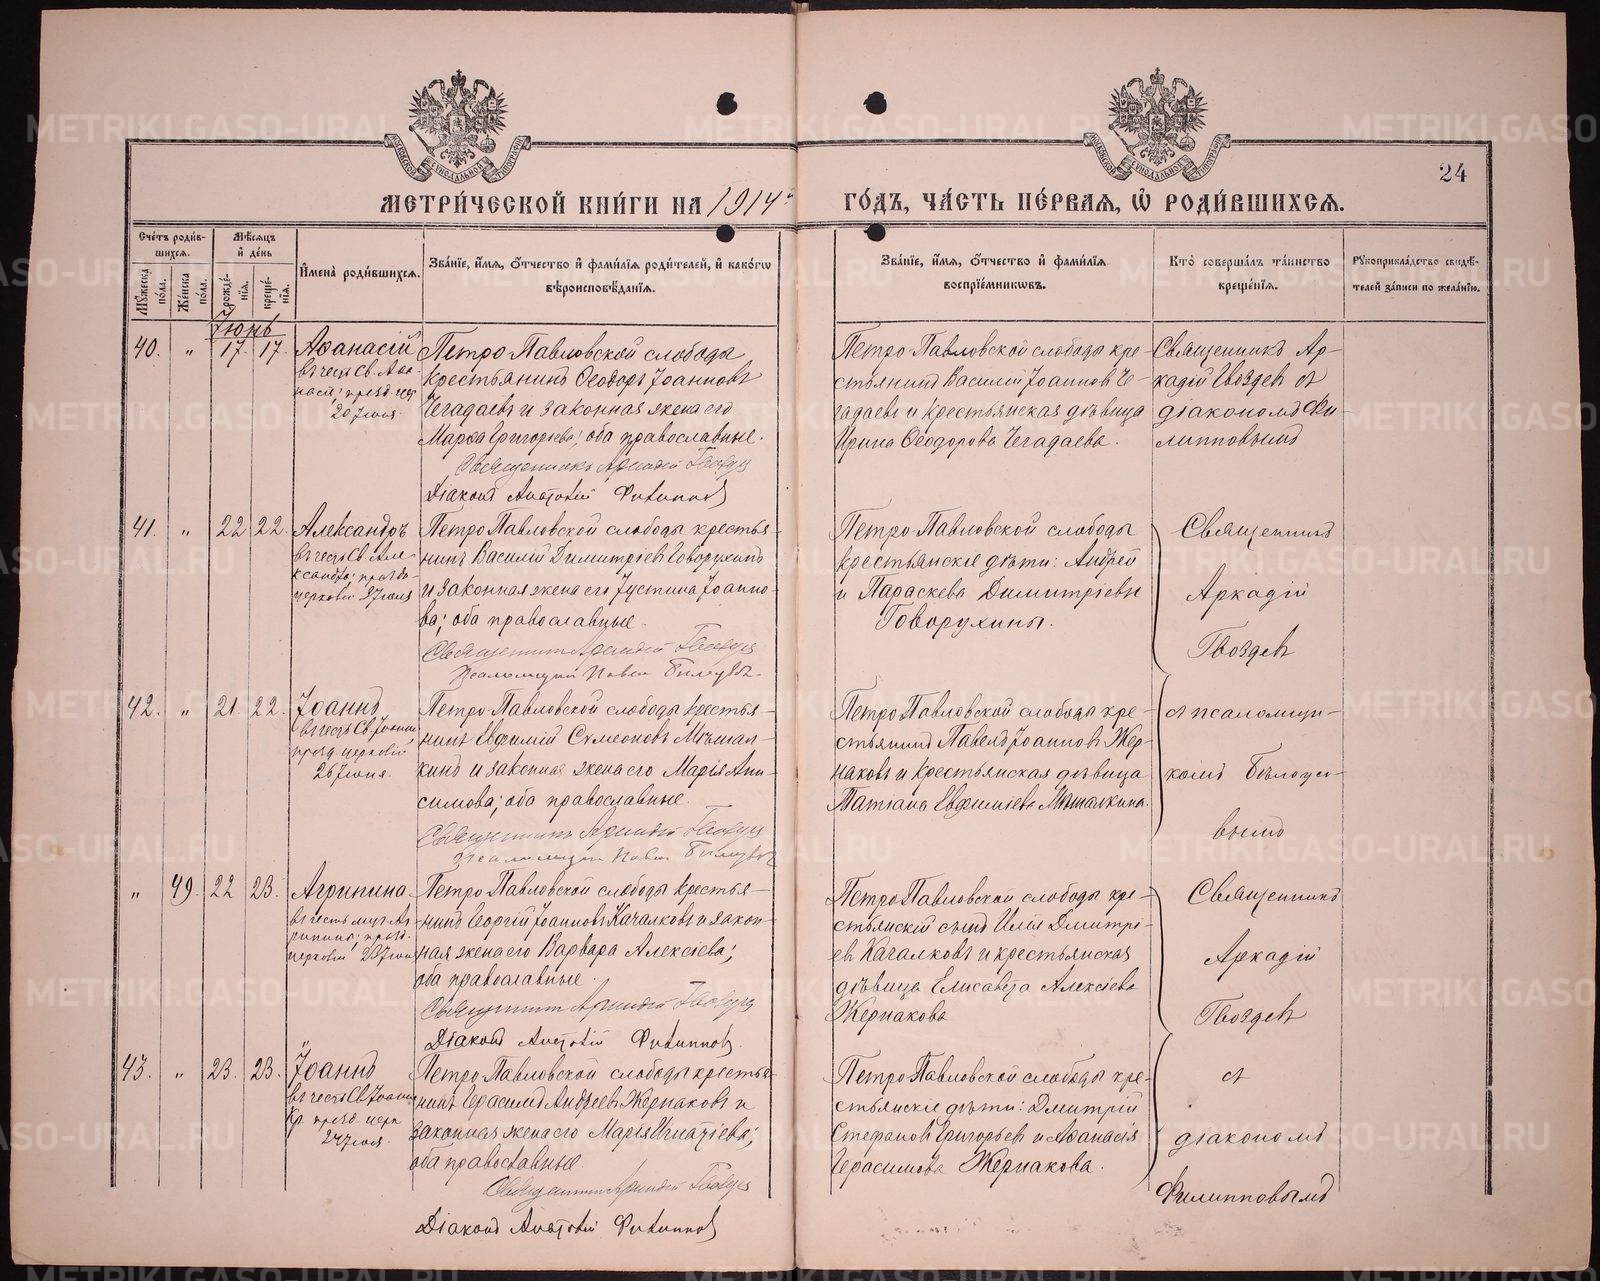 24
МЕТРИ́ЧЕСКОЙ КНИ́ГИ НА 1914й ГО́ДЪ, ЧА́СТЬ ПЕ́РВАЯ, Ѡ РОДИ́ВШИХСЯ.
Сче́тъ роди́вшихся.
Мꙋжеска по́ла.
Же́нска по́ла.
Мѣ́сяцъ и де́нь
рожде́нія.
креще́нія.
И҆мена̀ роди́вшихся.
Зва́ніе, и҆́мя, ѻ҆́тчество и҆ фами́лія роди́телей, и҆ како́гѡ
вѣроисповѣ́данія.
Зва́ніе, и҆́мя, ѻ҆́тчество и҆ фами́лія
воспріе́мникѡвъ.
Кто̀ соверша́лъ та́инство
креще́нія.
Рꙋкоприкла́дство свидѣ́-
телей за́писи по жела́нію.
Іюнь
40. " 17. 17.
Аѳанасій
въ честь св. Аѳа-
насія; празд. цер.
20 Іюля
Петро Павловской слободы
крестьянинъ Ѳеодоръ Іоанновъ
Чегадаевъ и законная жена его
Марѳа Григорьева; оба православные.
Священникъ Аркадій Гвоздевъ
Діаконъ Анатолій Филипповъ
Петро Павловской слободы кре-
стьянинъ Василій Іоанновъ Че-
гадаевъ и крестьянская дѣвица
Ирина Ѳеодорова Чегадаева.
Священникъ Ар-
кадій Гвоздевъ съ
діакономъ Фи-
липповымъ
41. " 22 22.
Александръ
въ честь Св. Але-
ксандра; празд.
церковію
Петро Павловской слободы крестья-
нинъ Василій Димитріевъ Говорухинъ
и законная жена его Іустина Іоанно-
ва; оба православные.
Священникъ Аркадій Гвоздевъ
Псаломщикъ Павелъ Бѣлоусовъ.
Петро Павловской слободы
крестьянскіе дѣти: Андрей
и Параскева Димитріевы
Говорухины.
Священникъ
Аркадій
Гвоздевъ
42. " 21. 22.
Іоаннъ
въ честь Св. Іоанна
празд. церковію
26 Іюня.
Петро Павловской слободы крестья-
нинъ Евфимій Сѵмеоновъ Мѣшал-
кинъ и законная жена его Марія Ани-
симова; оба православные.
Священникъ Аркадій Гвоздевъ
Псаломщикъ Павелъ Бѣлоусовъ
Петро Павловской слободы кре-
стьянинъ Павелъ Іоанновъ Жер-
наковъ и крестьянская дѣвица
Татіана Евфиміева Мѣшалкина.
съ псаломщи-
комъ Бѣлоусо-
вымъ
" 49. 22 23.
Агрипина
въ честь муч. Аг-
рипины; празд.
церковію 23 Іюня
Петро Павловской слободы крестья-
нинъ Георгій Іоанновъ Качалковъ и закон-
ная жена его Варвара Алексіева;
оба православные.
Священникъ Аркадій Гвоздевъ
Діаконъ Анатолій Филипповъ.
Петро Павловской слободы кре-
стьянскій сынъ Илія Дмитрі-
евъ Качалковъ и крестьянская
дѣвица Елисавета Алексіева
Жернакова
Священникъ
Аркадій
Гвоздевъ
43. " 23. 23.
Іоаннъ
въ честь Св. Іоанна
Кр. празд. церк.
24 Іюня.
Петро Павловской слободы крестья-
нинъ Герасимъ Андреевъ Жернаковъ и
законная жена его Марія Игнатіева;
оба православные.
Священникъ Аркадій Гвоздевъ
Діаконъ Анатолій Филипповъ
Петро Павловской слободы кре-
стьянскіе дѣти: Дмитрій
Стефановъ Григорьевъ и Аѳанасія
Герасимова Жернакова.
съ
діакономъ
Филипповымъ
METRIKI.GASO-URAL.RU